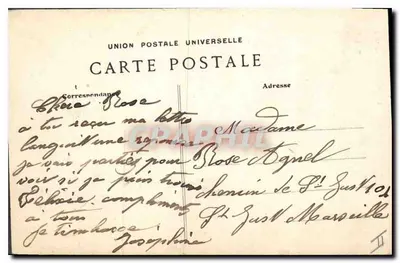 UNION POSTALE UNIVERSELLE
CARTE POSTALE
Correspondance
Adresse
Chere Rose
à tu reçue ma lettre
langui une reponse
je vais partir pour
voir si je puis trouvé
Félicie. compliments
à tous
je t'embrasse
Josephine
Madame
Rose Agnel
chemin de St Just 101
St Just Marseille
II